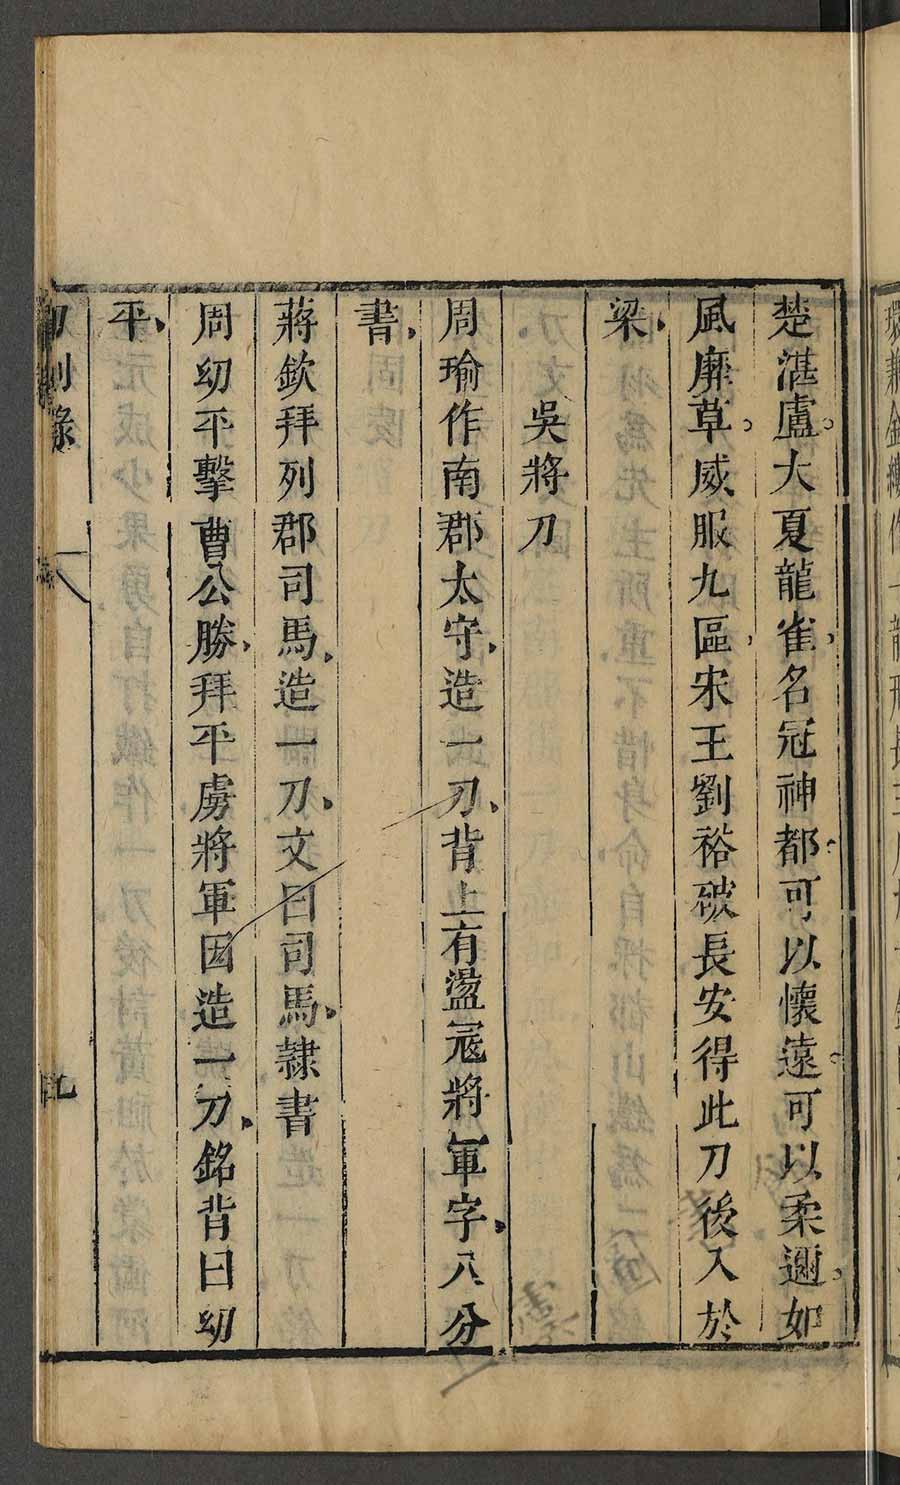 楚湛盧。大夏龍雀、名冠神都、可以懷遠、可以柔邇。如
風靡草。威服九區、宋王劉裕破長安得此刀後入於
梁、
吳將刀
周瑜作南郡太守、造一刀、背上有盪寇將軍字、八分
書、
蔣欽拜列郡司馬、造一刀、文曰司馬、隷書
周幼平擊曹公勝、拜平虜將軍因造一刀、銘背曰幼
平、
刀劍錄
九